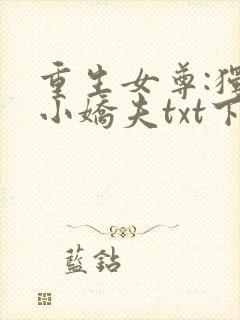 重生女尊:獨
小嬌夫txt下
藍鈷